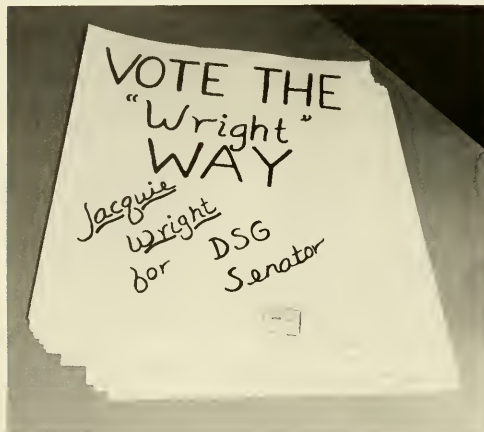 VOTE THE
"Wright"
WAY
Jacquie
Wright
for DSG
Senator